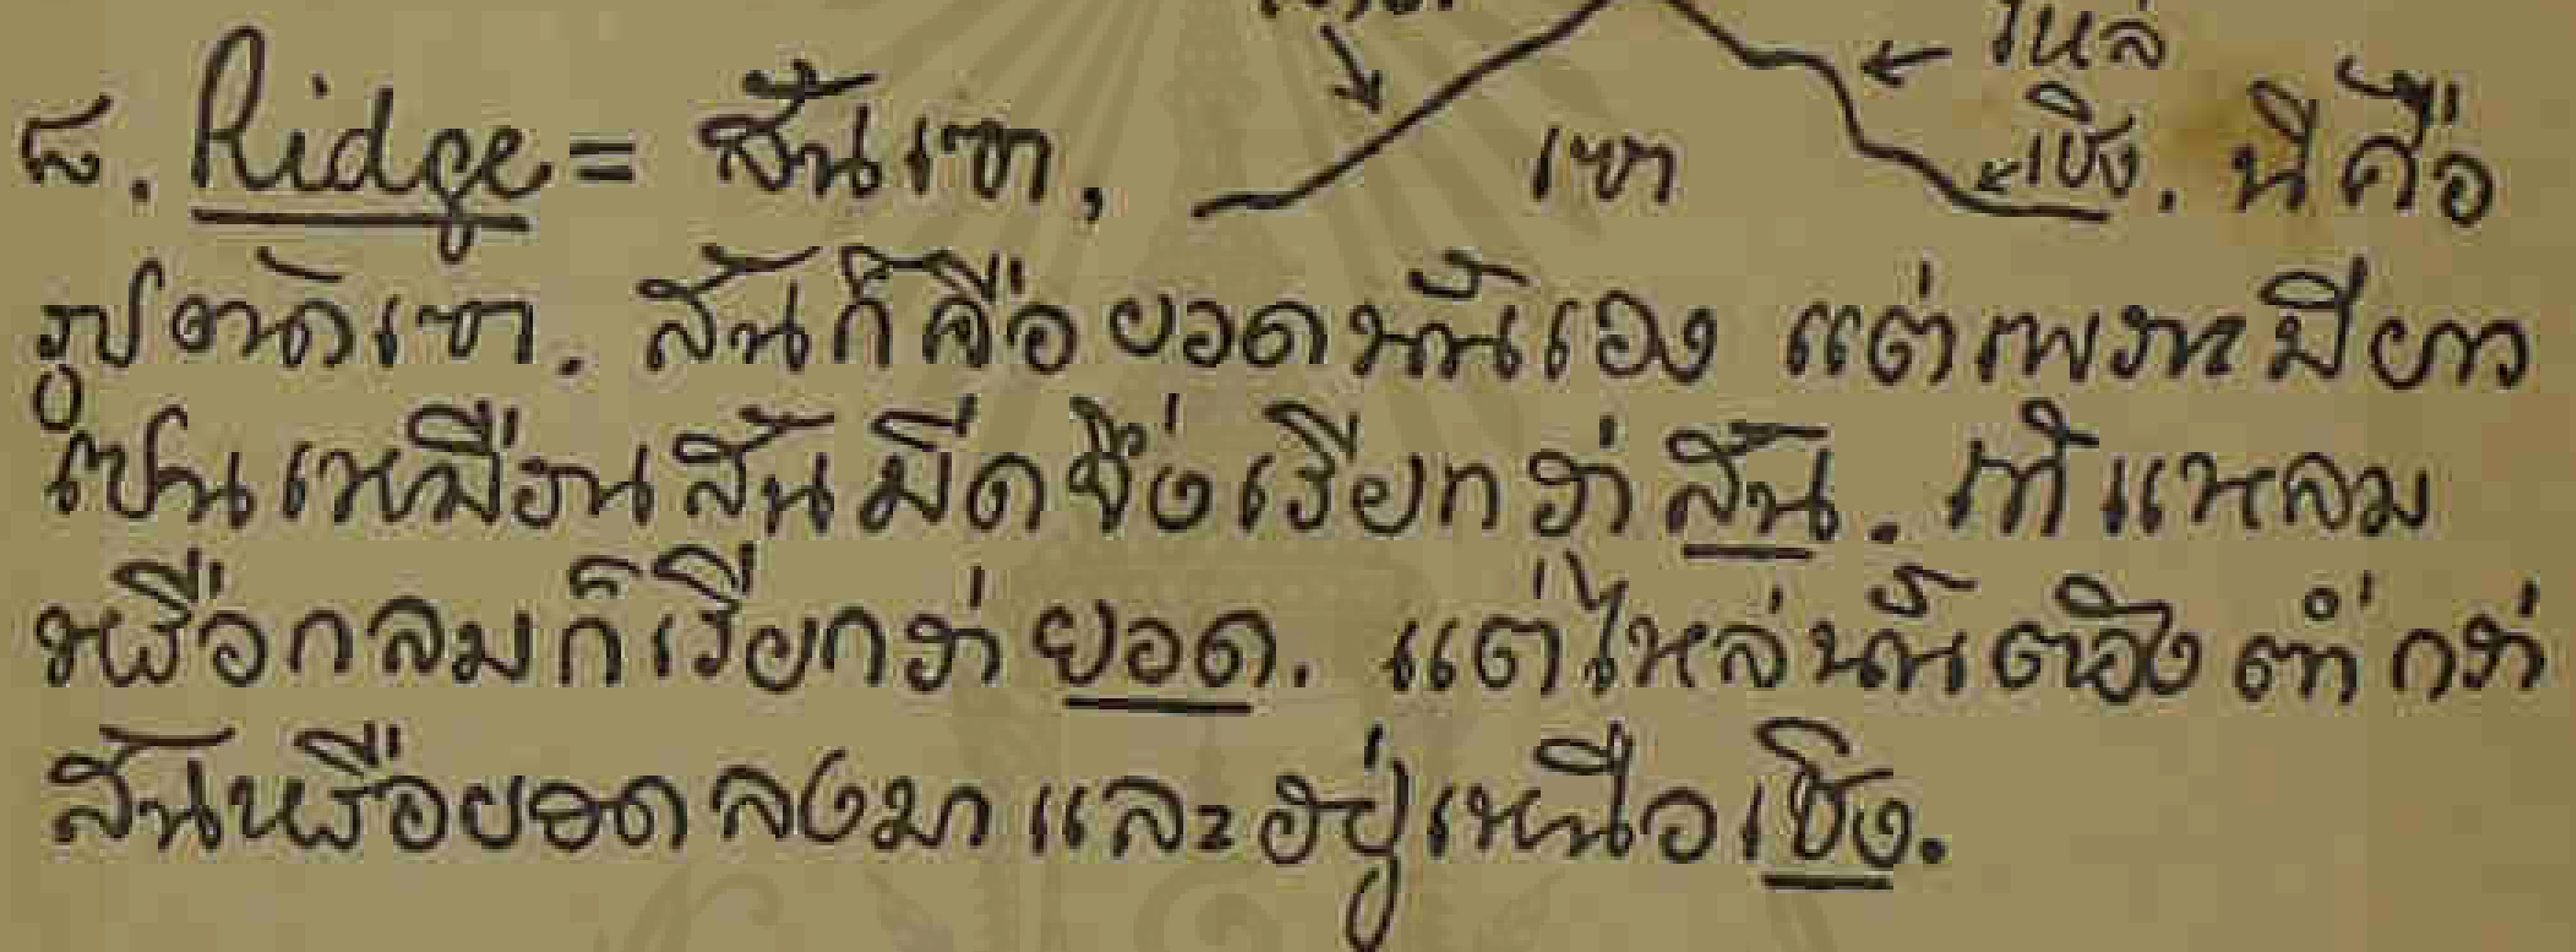 ไหล่
๘. Ridge = สันเขา, เขา เชิง. นี่คือ
รูปตัดเขา. สันก็คือยอดนั่นเอง แต่เพราะมียาว
เป็นเหมือนสันมีดจึ่งเรียกว่าสัน. ที่แหลม
หรือกลมก็เรียกว่ายอด. แต่ไหล่นั้นต้องต่ำกว่า
สันหรือยอดลงมาและอยู่เหนือเชิง.